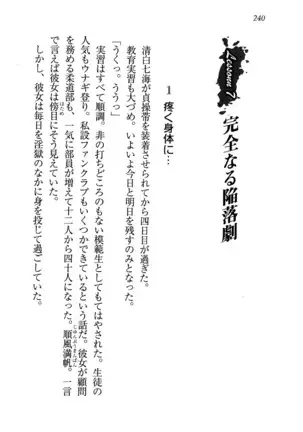 240
Lesson 7
完全なる陥落劇
1 疼く身体に…
清白七海が貞操帯を装着させられてから四日目が過ぎた。
教育実習も大づめ。いよいよ今日と明日を残すのみとなった。
「うくっ。ううっ」
実習はすべて順調。非の打ちどころのない模範生としてもてはやされた。生徒の
人気もウナギ登り。私設ファンクラブもいくつかできているという話だ。彼女が顧問
を務める柔道部も、一気に部員が増えて十二人から四十人になった。順風満帆。一言
で言えば彼女は傍目にそう見えていた。
しかし、彼女は毎日を淫獄のなかに身を投じて過ごしていた。